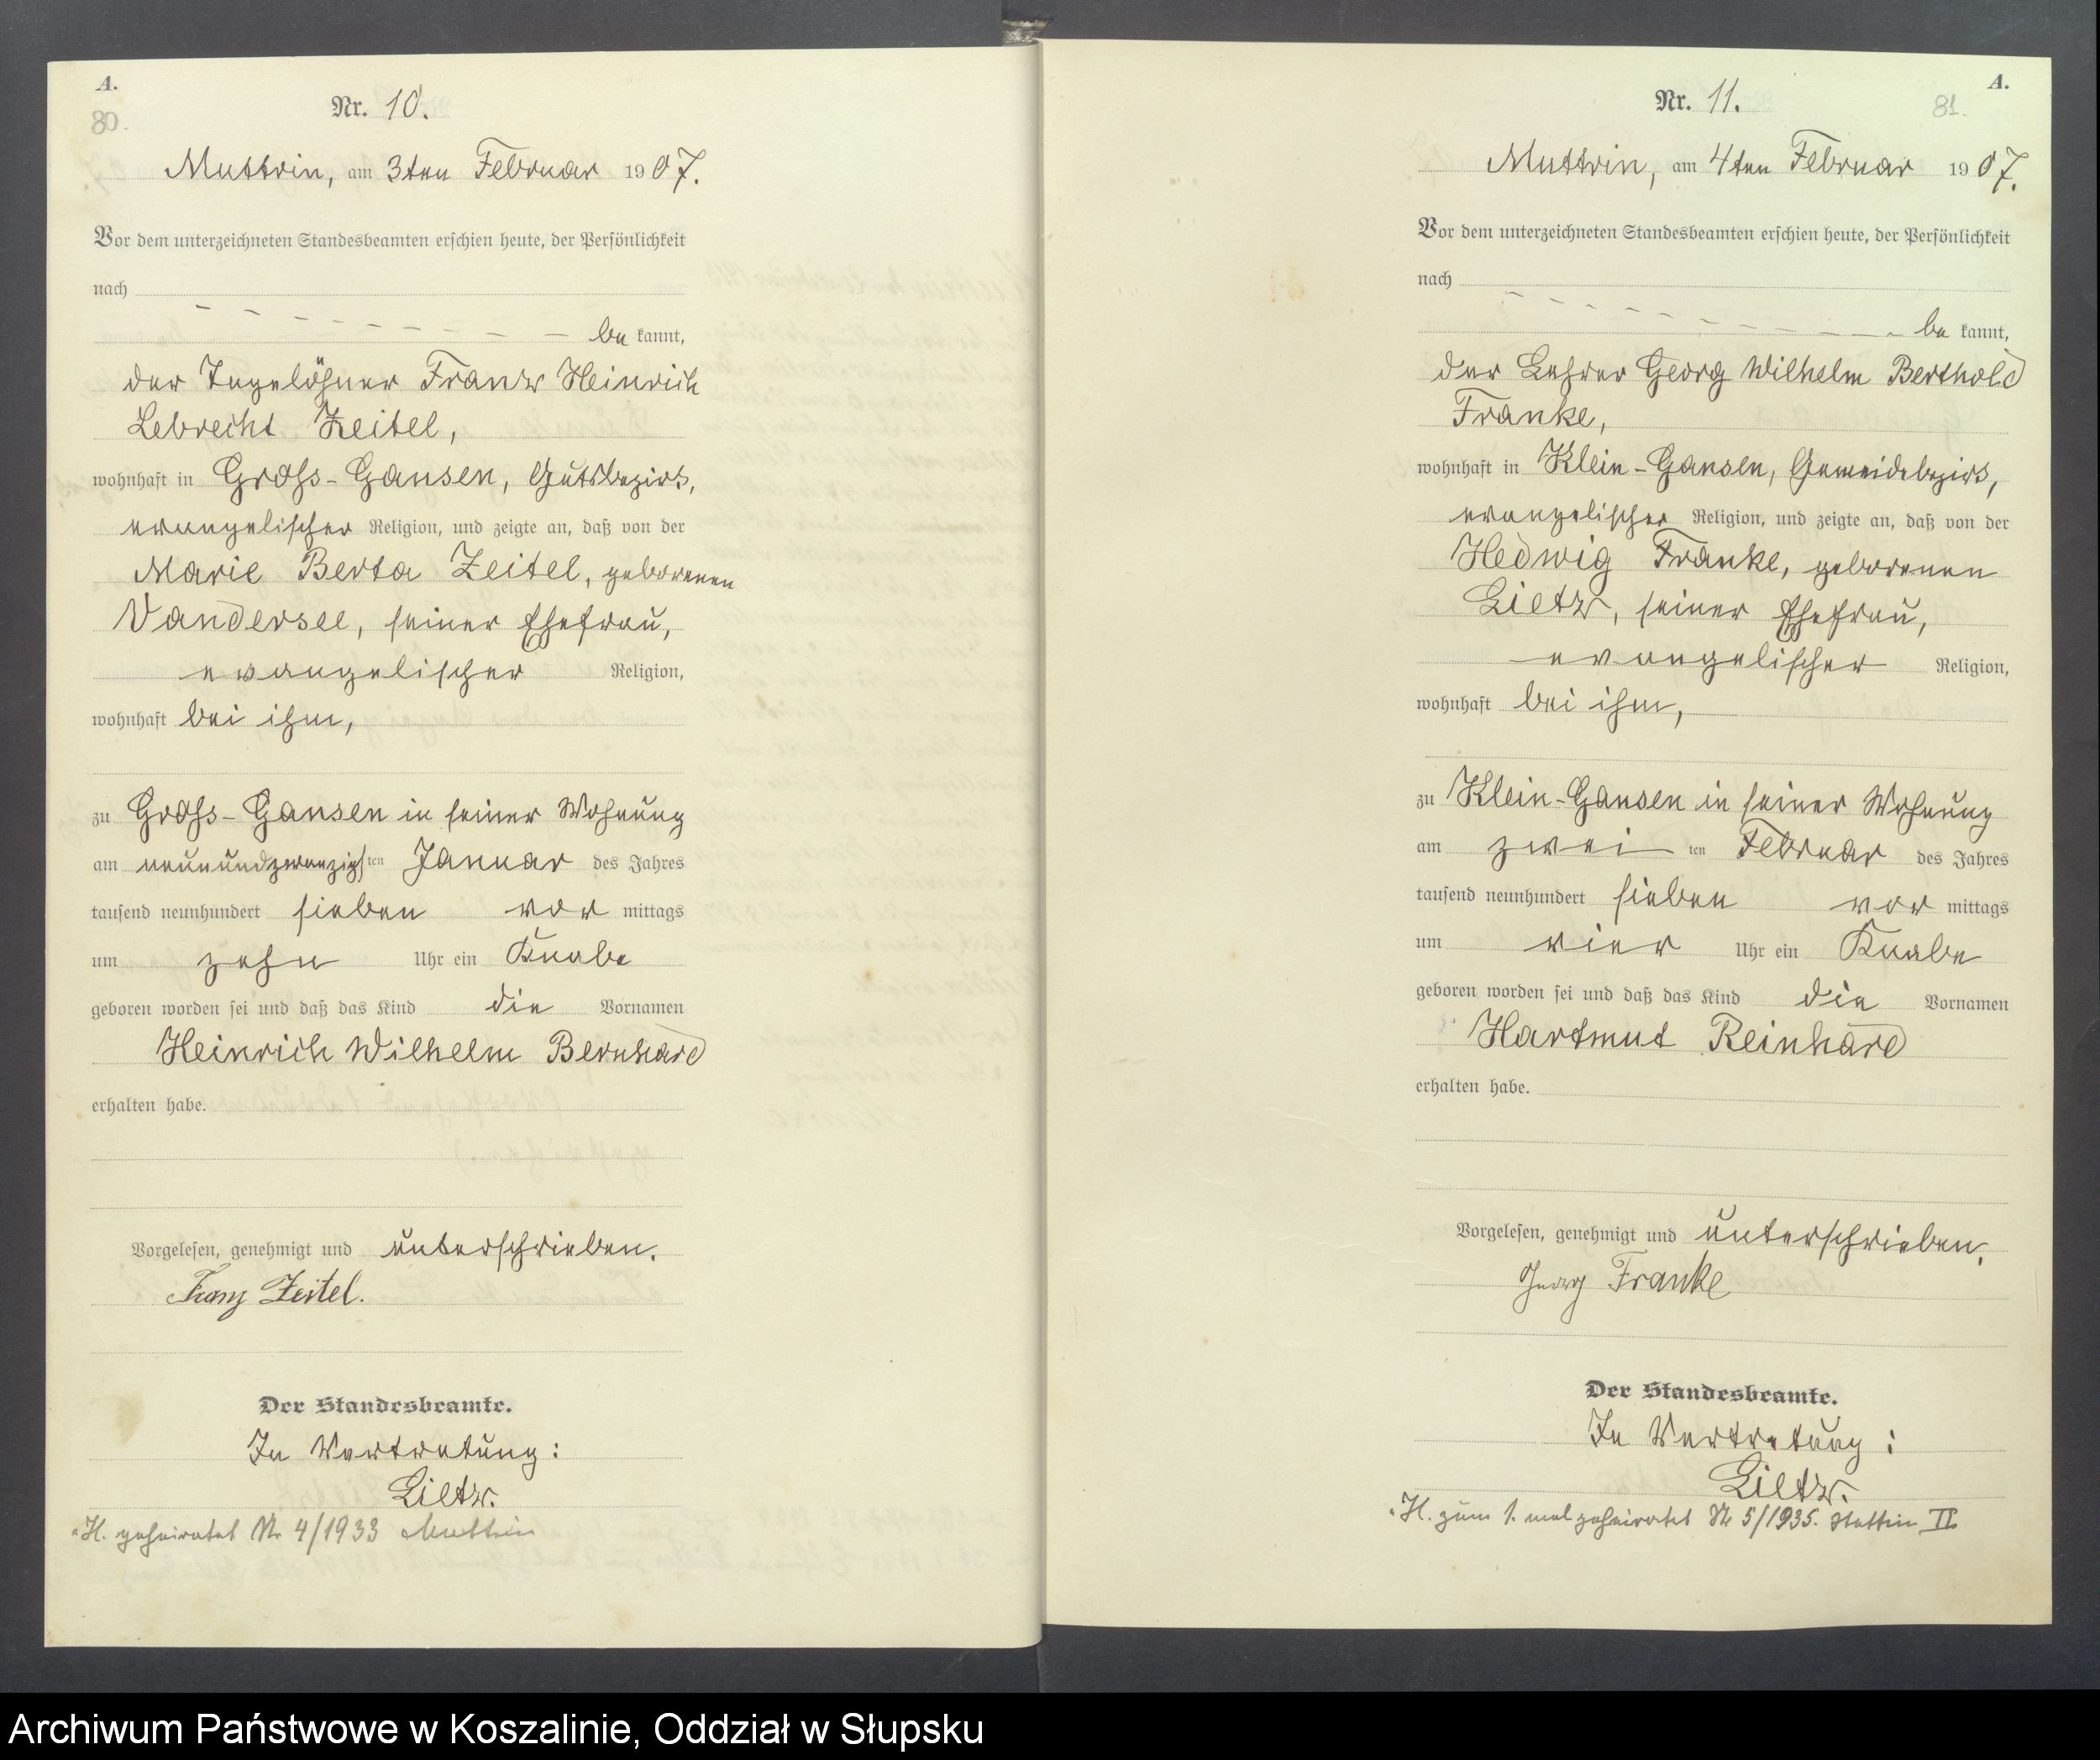 A.
80.
Nr. 10.
Muttrin, am 3ten Februar 1907.
Vor dem unterzeichneten Standesbeamten erschien heute, der Persönlichkeit
nach
be kannt,
der Tagelöhner Franz Heinrich
Lebrecht Zeitel,
wohnhaft in Gross-Gansen, Gutsbezirk,
evangelischer Religion, und zeigte an, daß von der
Marie Berta Zeitel, geborenen
Vandersee, seiner Ehefrau,
evangelischer Religion,
wohnhaft bei ihm,
zu Gross-Gansen in seiner Wohnung
am neunundzwanzigsten Januar des Jahres
tausend neunhundert sieben vor mittags
um zehn Uhr ein Knabe
geboren worden sei und daß das Kind die Vornamen
Heinrich Wilhelm Bernhard
erhalten habe.
Vorgelesen, genehmigt und unterschrieben.
Franz Zeitel.
Der Standesbeamte.
In Vertretung:
Lietz.
H. geheiratet Nr. 4/1933 Muttrin
A.
81.
Nr. 11.
Muttrin, am 4ten Februar 1907.
Vor dem unterzeichneten Standesbeamten erschien heute, der Persönlichkeit
nach
be kannt,
der Lehrer Georg Wilhelm Berthold
Franke,
wohnhaft in Klein-Gansen, Gemeidebezirk,
evangelischer Religion, und zeigte an, daß von der
Hedwig Franke, geborenen
Lietz, seiner Ehefrau,
evangelischer Religion,
wohnhaft bei ihm,
zu Klein-Gansen in seiner Wohnung
am zwei ten Februar des Jahres
tausend neunhundert sieben vor mittags
um vier Uhr ein Knabe
geboren worden sei und daß das Kind die Vornamen
Hartmut Reinhard
erhalten habe.
Vorgelesen, genehmigt und unterschrieben.
Georg Franke
Der Standesbeamte.
In Vertretung:
Lietz.
H. zum 1. mal geheiratet Nr 5/1935. Stettin II
Archiwum Państwowe w Koszalinie, Oddział w Słupsku